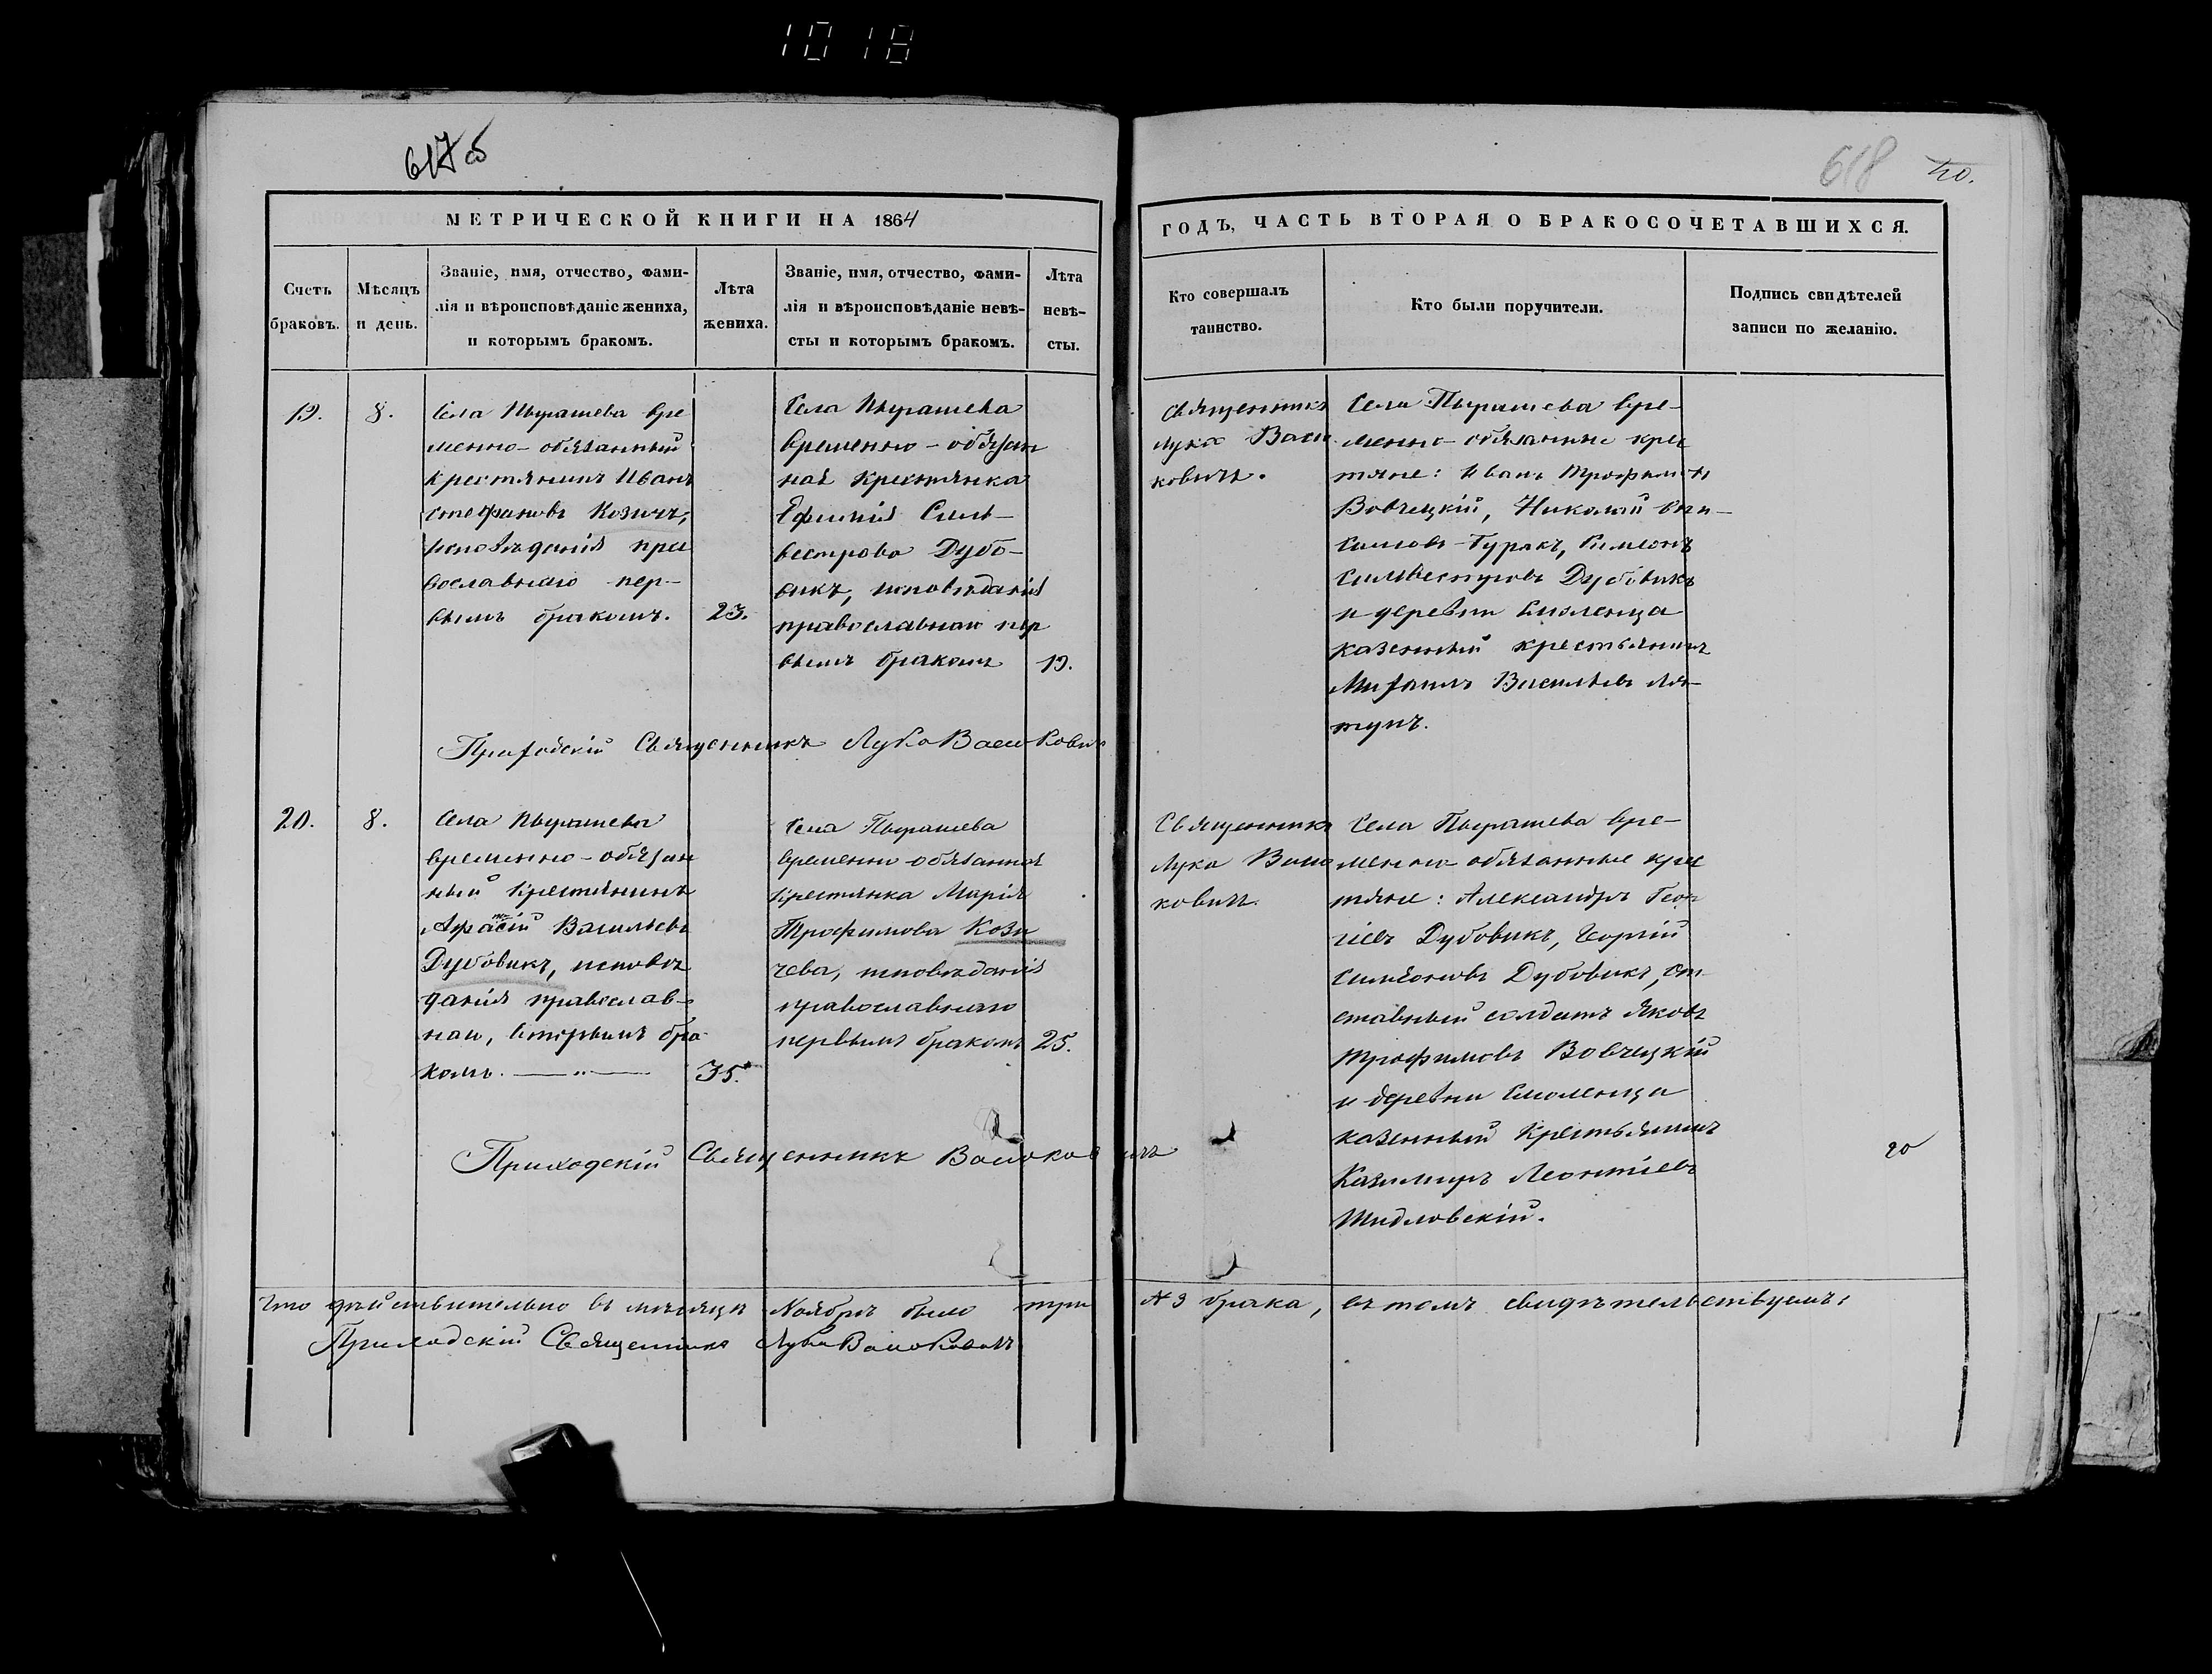 1018
617 об
618 40.
МЕТРИЧЕСКОЙ КНИГИ НА 1864
ГОДЪ, ЧАСТЬ ВТОРАЯ О БРАКОСОЧЕТАВШИХСЯ.
Счетъ
браковъ.
Мѣсяцъ
и день.
Званіе, имя, отчество, фами-
лія и вѣроисповѣданіе жениха,
и которымъ бракомъ.
Лѣта
жениха.
Званіе, имя, отчество, фами-
лія и вѣроисповѣданіе невѣ-
сты и которымъ бракомъ.
Лѣта
невѣ-
сты.
Кто совершалъ
таинство.
Кто были поручители.
Подпись свидѣтелей
записи по желанію.
19.
8.
Села Пырашева вре
менно-обязанный
крестянинъ Иванъ
Стефановъ Козичъ,
исповѣданія пра
вославнаго пер-
вымъ бракомъ.
23.
Села Пырашева
временно-обязан
ная крестянка
Ефимія Силь-
вестрова Дубо-
викъ, исповѣданія
православнаго пер
вымъ бракомъ
19.
Священникъ
Лука Васю
ковичъ.
Села Пырашева вре-
менно-обязанные крес
тяне: Иванъ Трофимовъ
Вовчецкій, Николай
Гуракъ, Симеонъ
Сильвестровъ Дубовикъ
и деревни Смоленца
казенный крестьянинъ
Михаилъ Васильевъ Ля-
тунъ.
Приходскій Священникъ Лука Васюковичъ
20.
8.
Села Пырашева
временно-обязан
ный крестянинъ
Васильевъ
Дубовикъ, исповѣ
данія православ-
наго, вторымъ бра
комъ. —„—
35.
Села Пырашева
временно-обязанная
крестянка Марія
Трофимова Кози
чева, исповѣданія
православнаго
первымъ бракомъ
25.
Священникъ
Лука Васю
ковичъ.
Села Пырашева вре-
менно-обязанные крес
тяне: Александръ Геор
гіевъ Дубовикъ, Георгій
Симеоновъ Дубовикъ, от
ставный солдатъ Яковъ
Трофимовъ Вовчецкій
и деревни Смоленца
казенный крестьянинъ
Казимиръ Леонтіевъ
Шидловскій.
20
Приходскій Священникъ Васюковичъ
Что дѣйствительно въ мѣсяцѣ Ноябрѣ было три № 3 брака, въ томъ свидѣтельствуемъ:
Приходскій Священникъ Лука Васюковичъ